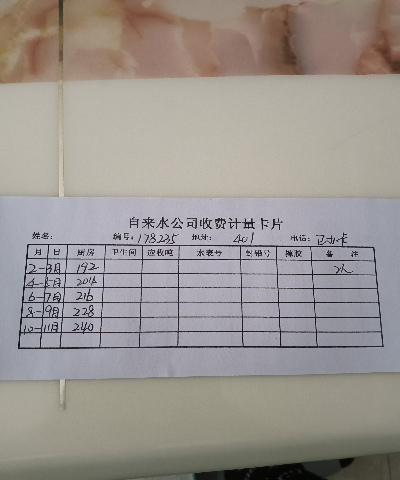 自来水公司收费计量卡片
姓名： 编号：178225 地址： 401 电话：
月 日 厨房 卫生间 应收吨 水表号 封铅号 橡胶 备 注
2-3月 192
4-5月 204
6-7月 216
8-9月 228
10-11月 240